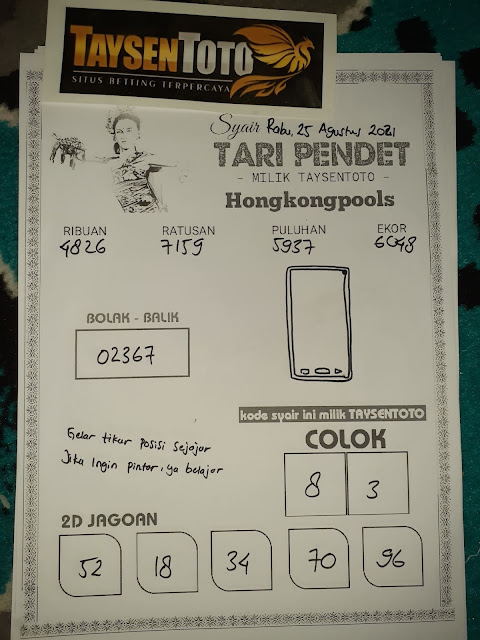 TAYSENTOTO
SITUS BETTING TERPERCAYA
Syair Rabu, 25 Agustus 2021
TARI PENDET
- MILIK TAYSENTOTO -
Hongkongpools
RIBUAN RATUSAN PULUHAN EKOR
4826 7159 5937 6048
BOLAK - BALIK
02367
kode syair ini milik TAYSENTOTO
COLOK
8 3
Gelar tikar posisi sejajar
Jika ingin pintar, ya belajar
2D JAGOAN
52 18 34 70 96